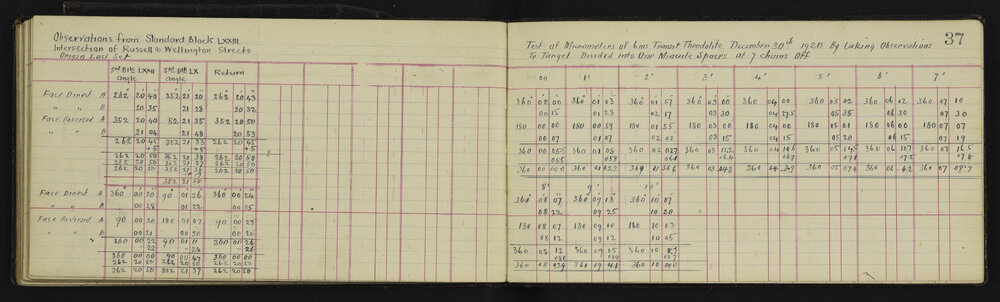 Observations from Standard Block LXXIII
Intersection of Russell & Wellington Streets
Origin Last Set
Std Blk LXXII Std Blk LX Return
Angle Angle
Face Direct A 262 20 40 352 21 20 262 20 43
" " B 20 35 21 28 20 32
Face Reversed A 352 20 40 82 21 35 352 20 50
" " B 21 04 21 48 20 53
262 20 45 352 21 33 262 20 45
+5 +5 +5
262 20 50 352 21 38 262 20 50
262 20 50 352 21 37 262 20 50
262 20 50 352 21 38 262 20 50
352 21 15
Face Direct A 360 00 20 90 01 26 360 00 24
" " B 00 28 01 22 00 25
Face Reversed A 90 00 20 180 01 07 90 00 25
" " B 00 21 00 50 00 26
360 00 22 90 01 11 360 00 26
- 22 - 24 - 26
360 00 00 90 00 47 360 00 00
262 20 50 262 20 50 262 20 50
262 20 50 352 21 37 262 20 50
37
Test of Micrometers of 6ins Transit Theodolite December 30th 1920 By Taking Observations
To Target Divided into One Minute Spaces at 7 chains Off
00 1' 2' 3' 4' 5' 6' 7'
360 00 00 360 01 03 360 01 57 360 03 00 360 04 00 360 05 02 360 06 12 360 07 10
00 15 01 23 02 17 03 30 04 27.5 05 35 06 30 07 30
180 00 00 180 00 59 180 01 55 180 03 00 180 04 00 180 05 01 180 06 00 180 07 07
00 07 01 07 02 02 03 15 04 15 05 20 06 15 07 19
360 00 05.5 360 01 08 360 02 02.7 360 03 11.2 360 04 10.6 360 05 14.5 360 06 360 07 16.5
360 00 00.0 360 01 02.2 360 360 03 04.8 360 04 360 05 07.4 360 06 360 07 08.7
8' 9' 10'
360 08 07 360 09 13 360 10 07
08 22 09 25 10 20
180 08 07 180 09 10 180 10 03
08 12 09 12 10 05
360 08 12 360 09 15 360 10 8.7
360 08 03.9 360 09 360 10 00.0